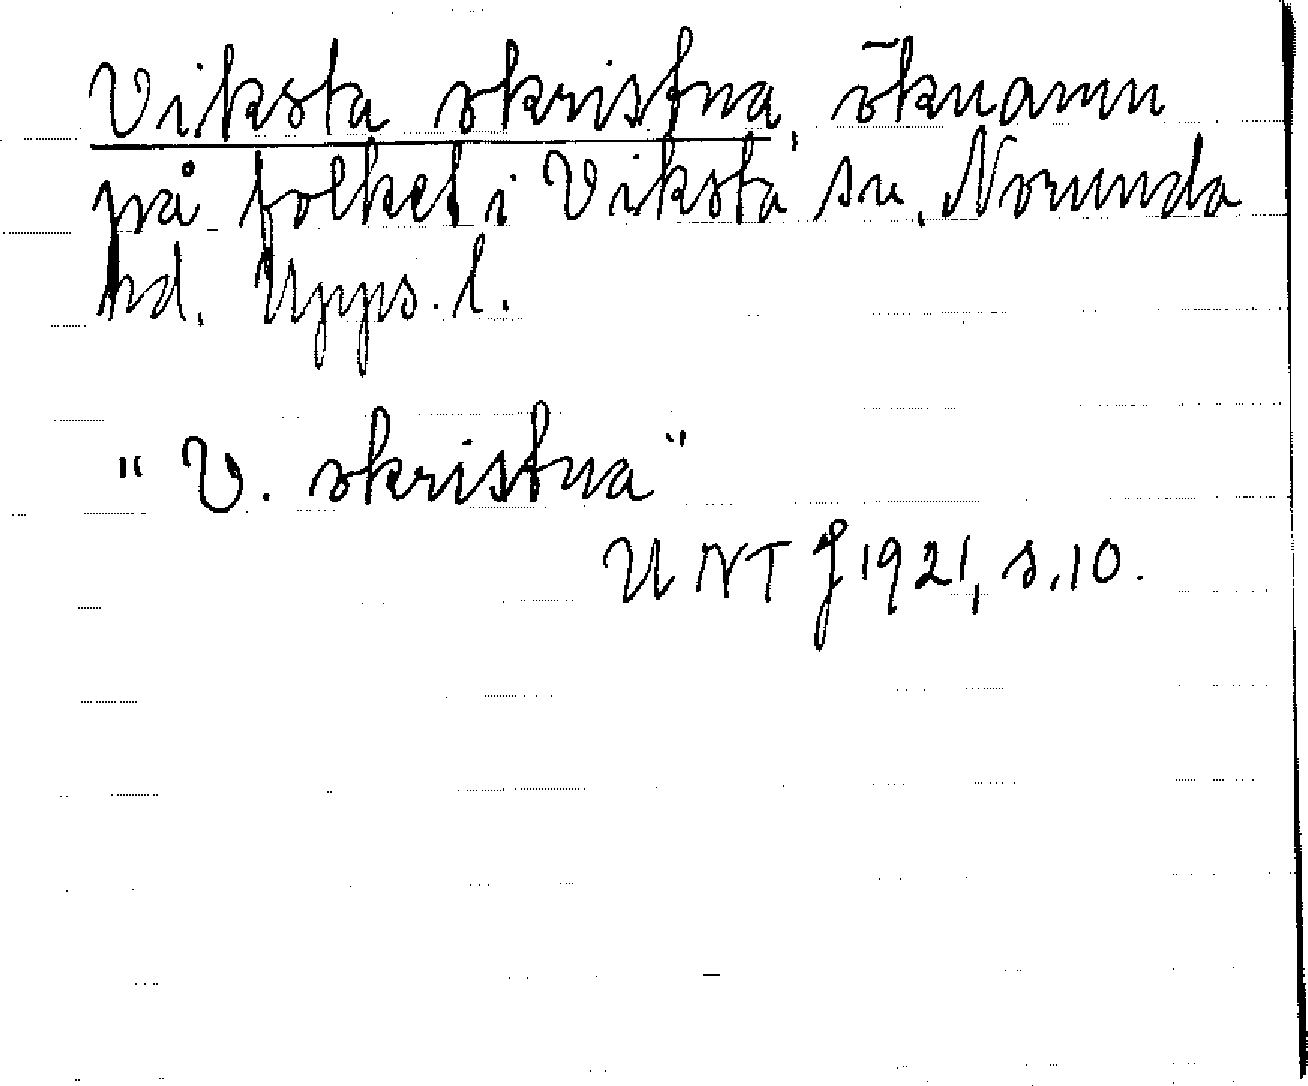 Viksta okristna, öknamn
på folket i Viksta sn. Norunda
hd. Upps. l.
"V. okristna"
UNT J 1921, s. 10.